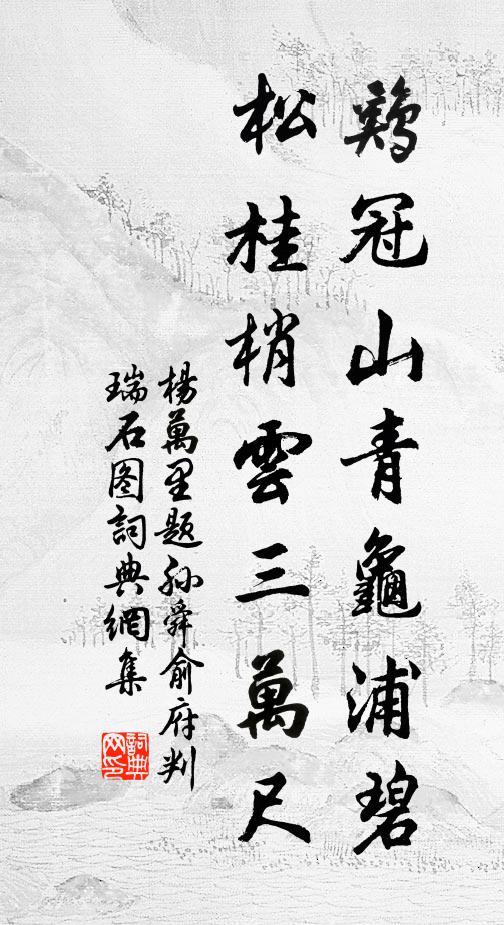 鷄冠山青龜浦碧
松桂梢雲三萬尺
楊萬里题孫舜俞府判
瑞石图詞典網集
詞典網印